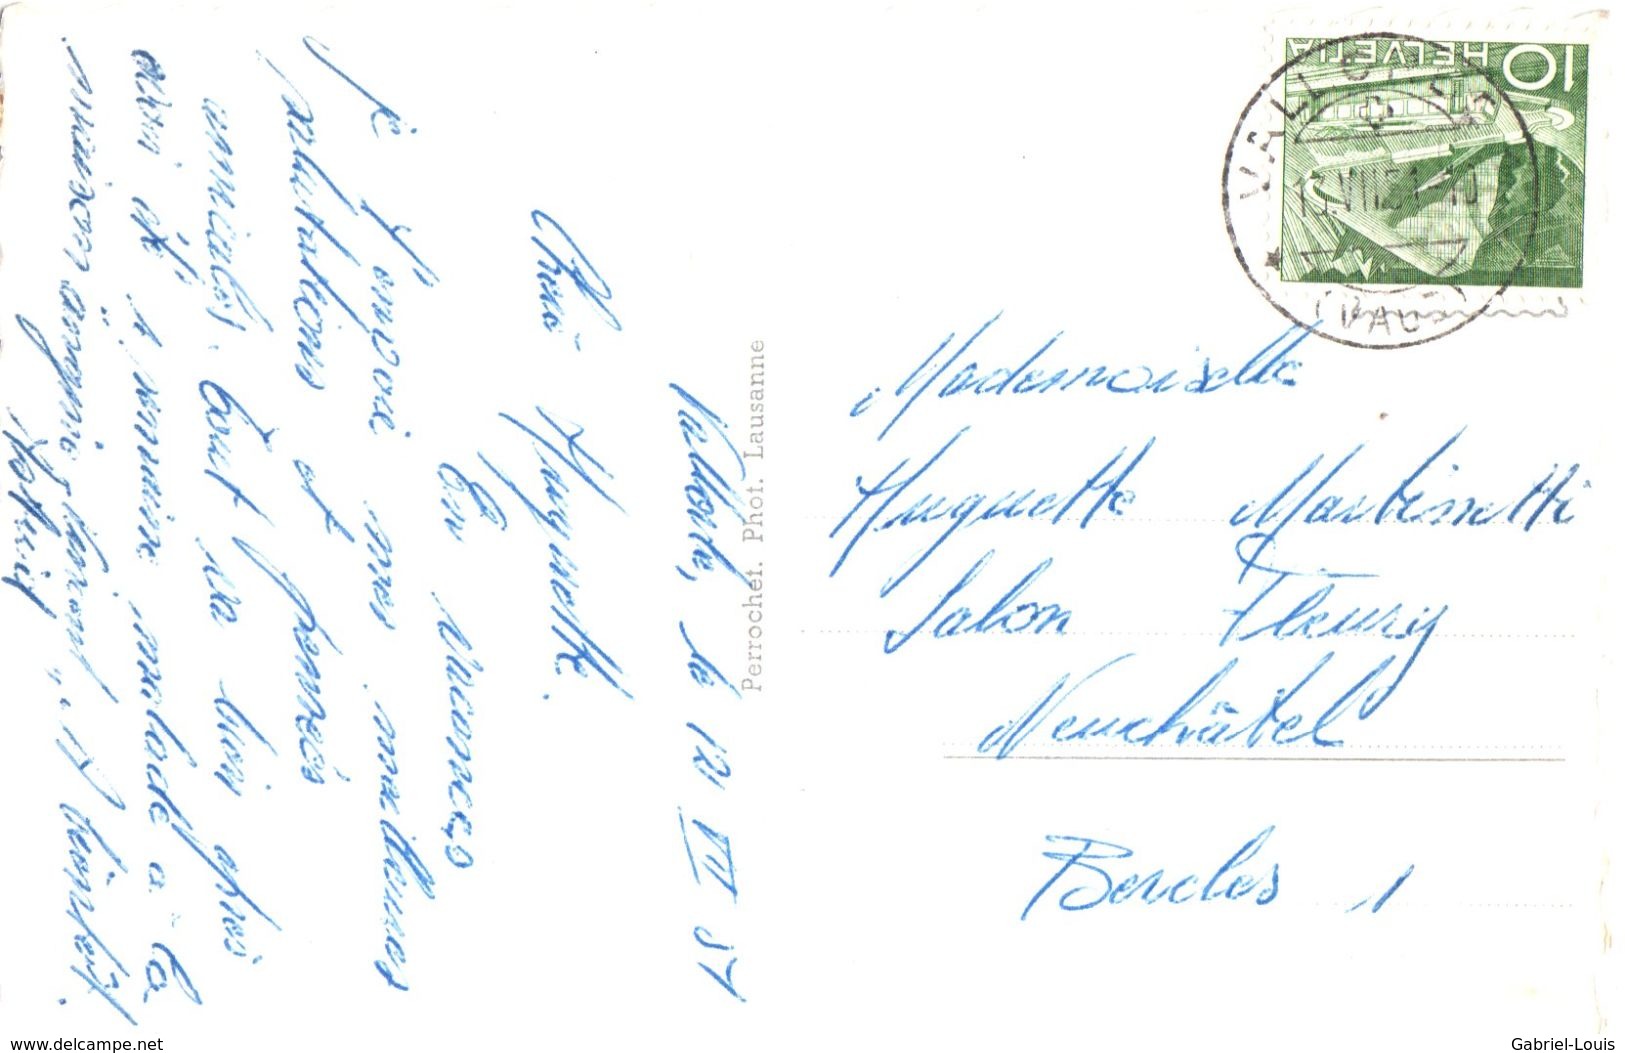 Vallorbe, le 12 VII 51
Chère Huguette.
En vacances
je t'envoie mes meilleures
salutations et pensées
amicales. Tout va bien après
avoir été 1 semaine malade à la
maison
A bientôt.
Perrochet. Phot. Lausanne
HELVETIA 10
VALLORBE
13.VII.51-10
(VAUD)
Mademoiselle
Huguette Martinetti
Salon Fleury
Neuchâtel
Bercles 1
www.delcampe.net
Gabriel-Louis